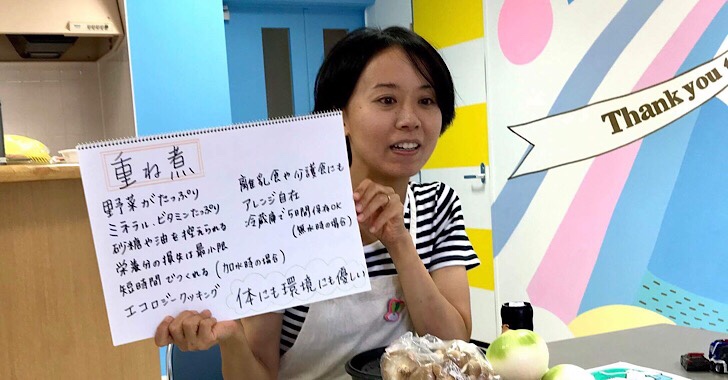 重ね煮
野菜がたっぷり
ミネラル、ビタミンたっぷり
砂糖や油を控えられる
栄養分の損失は最小限
短時間でつくれる(加水時の場合)
エコロジークッキング
離乳食や介護食にも
アレンジ自在
冷蔵庫で5日間保存OK
(無水時の場合)
体にも環境にも優しい
Thank you